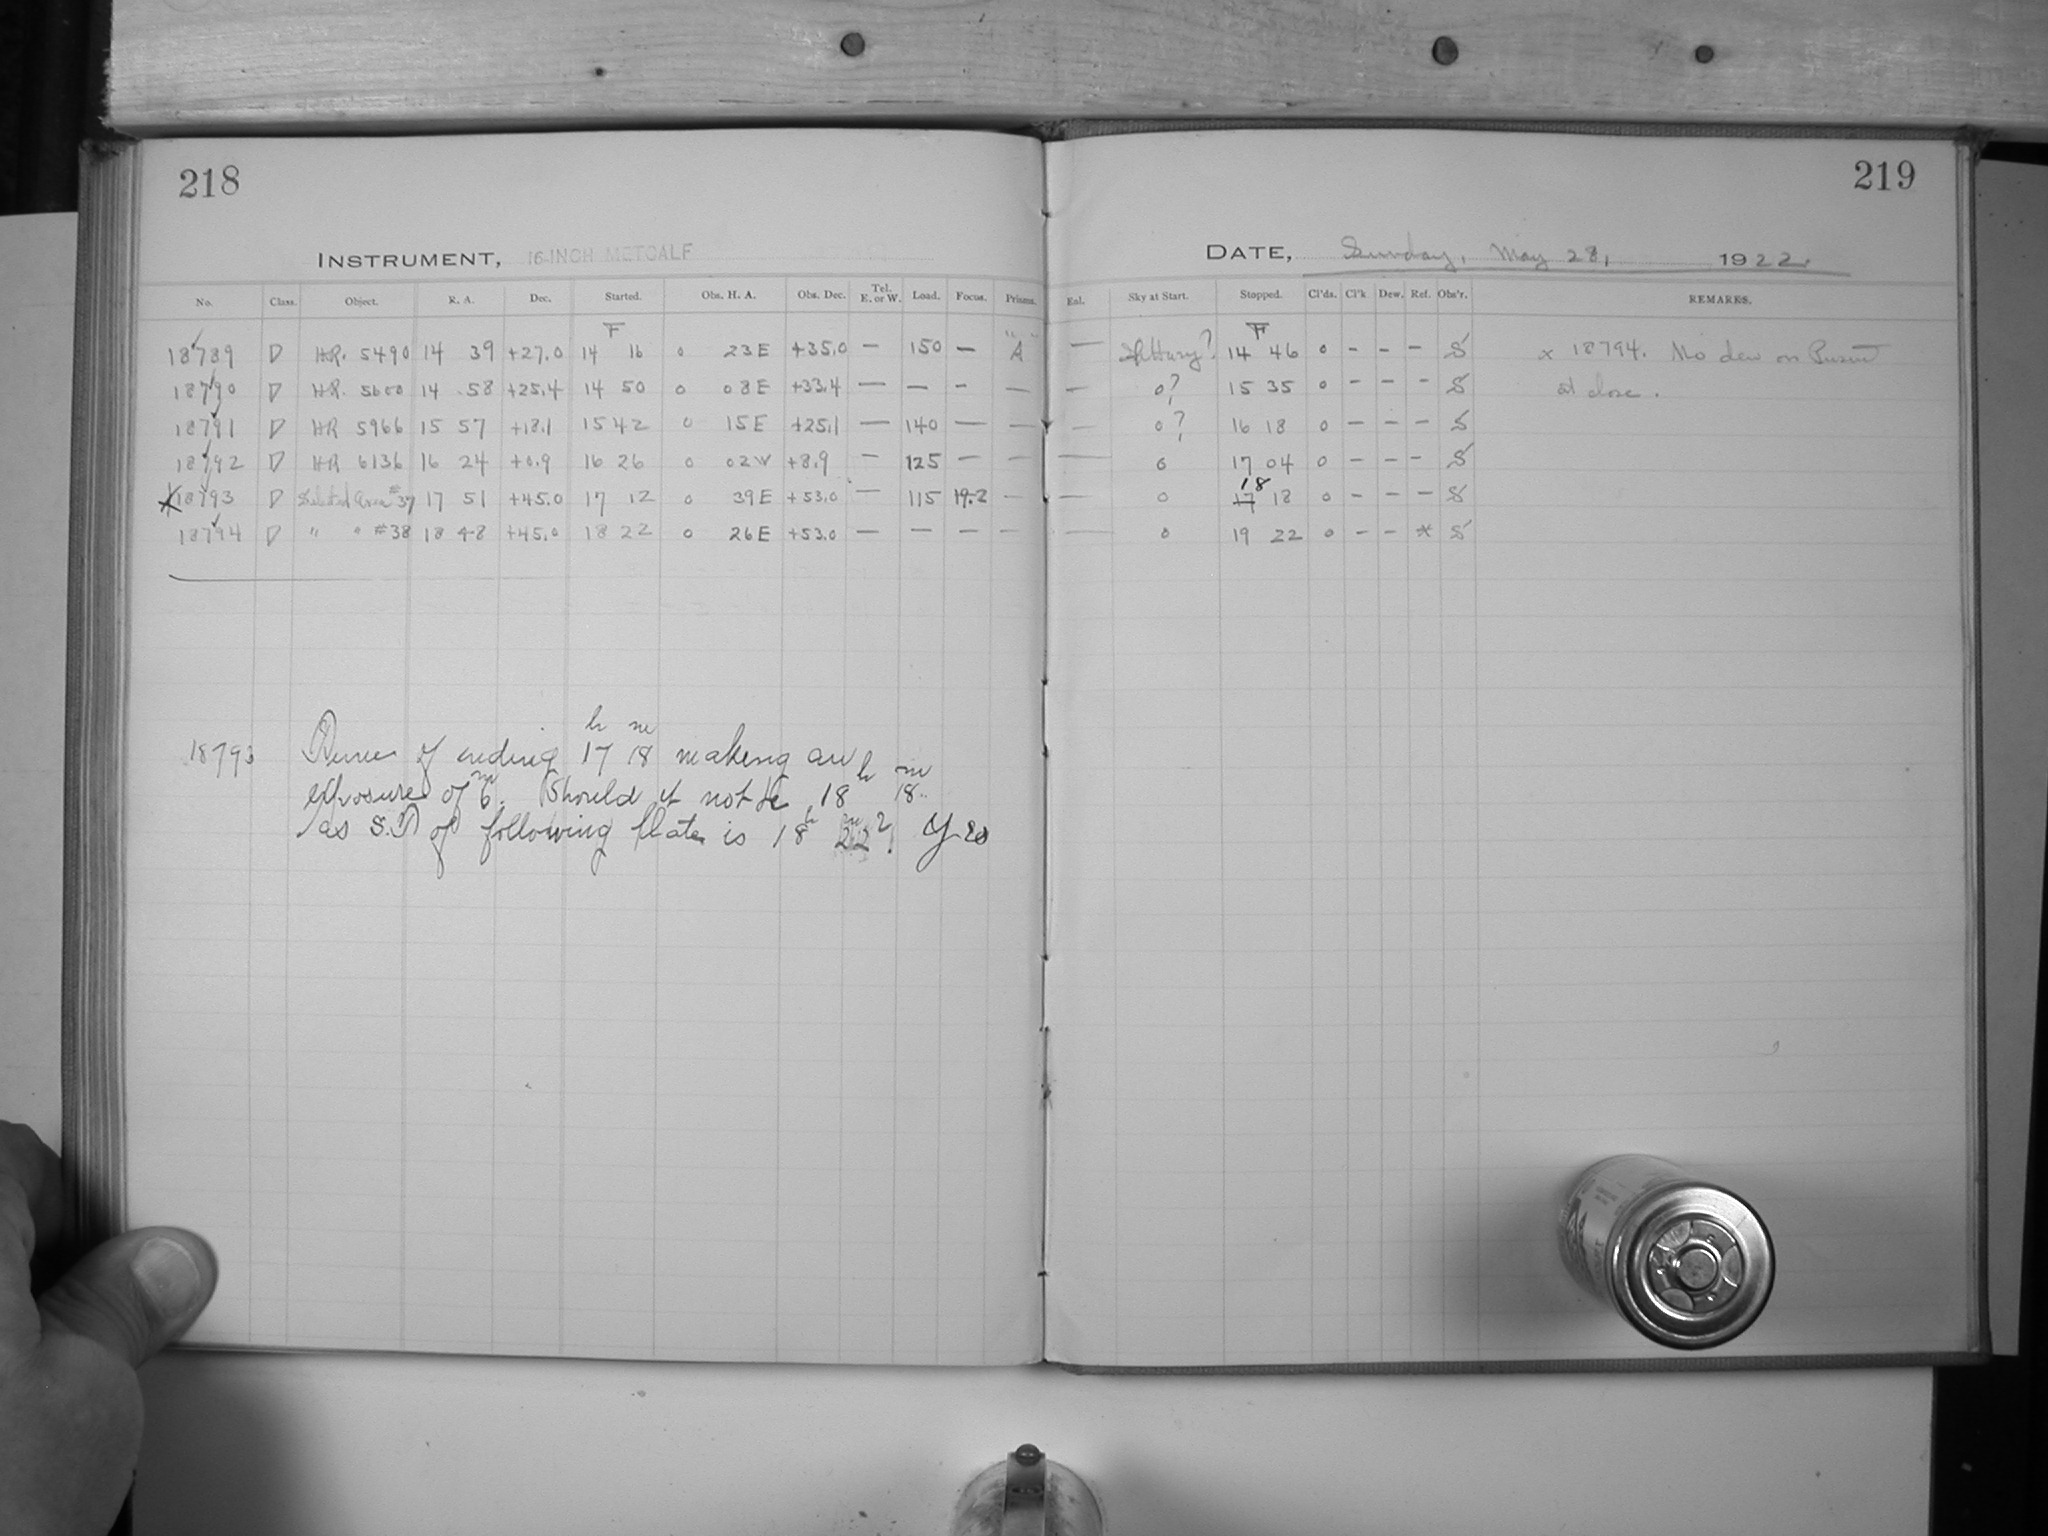 218
219
INSTRUMENT, 16-INCH METCALF
DATE, Sunday, May 28, 1922.
No. Class. Object. R. A. Dec. Started. Obs. H. A. Obs. Dec. Tel. E. or W. Load. Focus. Prisms. Enl. Sky at Start. Stopped. Cl'ds. Cl'k Dew. Ref. Obs'r. REMARKS.
F F
18789 D H.R. 5490 14 39 +27.0 14 16 0 23 E +35.0 — 150 — "A" — Hazy? 14 46 0 - - - S x 18794. No dew on Prism
18790 D H.R. 5600 14 58 +25.4 14 50 0 08 E +33.4 — — - — — 0? 15 35 0 - - - S at close.
18791 D HR 5966 15 57 +18.1 15 42 0 15 E +25.1 — 140 — — — 0? 16 18 0 - - - S
18792 D HR 6136 16 24 +0.9 16 26 0 02 W +8.9 — 125 — — — 0 17 04 0 - - - S
18
X 18793 D Selected Area #37 17 51 +45.0 17 12 0 39 E +53.0 — 115 19.2 — — 0 17 18 0 - - - S
18794 D " " #38 18 48 +45.0 18 22 0 26 E +53.0 — — — — — 0 19 22 0 - - * S
18793 Time of ending 17 h 18 m making an
exposure of 6 m. Should it not be 18 h 18 m
as S.T of following Plate is 18 h 22 m? Yes